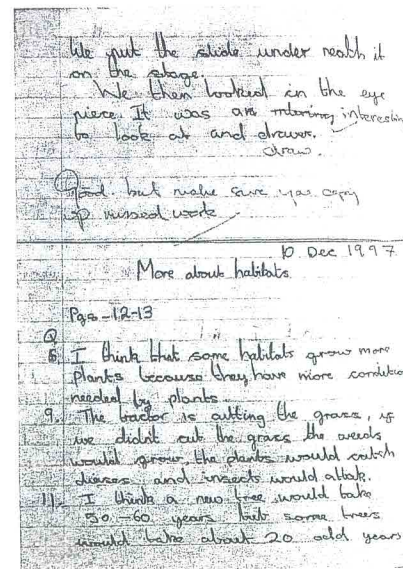 We put the slide under neath it
on the stage.
We then looked in the eye
piece. It was an intering interestin
to look at and drawer.
draw.
Good but make sure you copy
up missed work
10 Dec 1997
More about habitats.
Pgs - 12-13
Q
8. I think that some habitats grow more
plants because they have more conditio
needed by plants.
9. The tractor is cutting the grass, if
we didn't cut the grass the weeds
would grow, the plants would catch
dieses and insects would attak.
11. I think a new tree would take
50 - 60 years but some trees
would take about 20 odd years